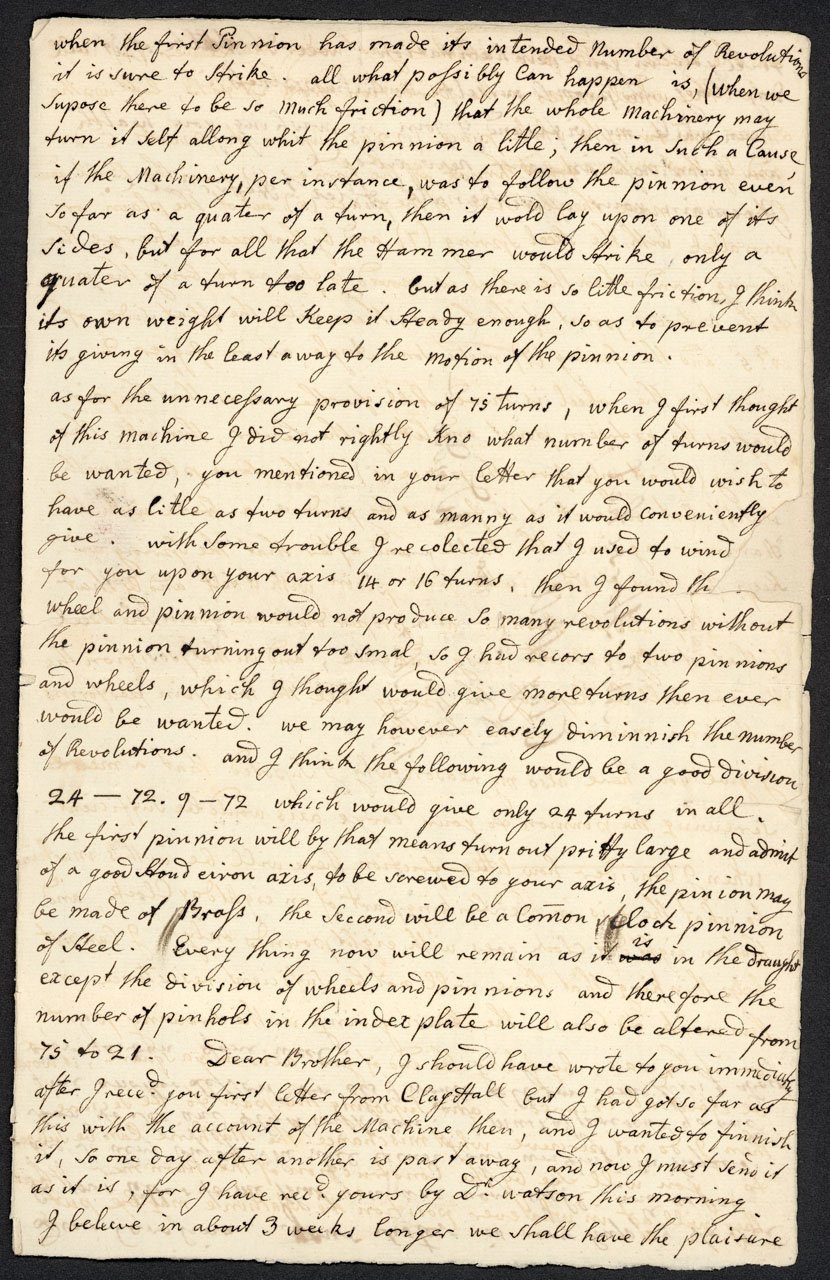 when the first Pinnion has made its intended Number of Revolutions
it is sure to Strike. all what possibly Can happen is, (when we
supose there to be so much friction) that the whole Machinery may
turn it self allong whit the pinnion a litle; then in Such a Cause
if the Machinery, per instance, was to follow the pinnion even
so far as a quater of a turn, then it wold lay upon one of its
sides, but for all that the Hammer would Strike only a
quater of a turn too late. but as there is so litle friction, I think
its own weight will Keep it Steady enough, so as to prevent
its giving in the least away to the motion of the pinnion.
as for the unnecessary provision of 75 turns, when I first thought
of this machine I did not rightly Kno what number of turns would
be wanted, you mentioned in your letter that you would wish to
have as litle as two turns and as manny as it would conveniently
give. with Some trouble I recolected that I used to wind
for you upon your axis 14 or 16 turns. then I found th
wheel and pinnion would not produce so many revolutions without
the pinnion turning out too smal, so I had recors to two pinnions
and wheels, which I thought would give more turns then ever
would be wanted. we may however easely diminnish the number
of Revolutions. and I think the following would be a good division
24 — 72. 9 — 72 which would give only 24 turns in all.
the first pinnion will by that means turn out pritty large and admit
of a good Stoud eiron axis, to be screwed to your axis, the pinion may
be made of Brass. the Second will be a Common Clock pinnion
of Steel. Every thing now will remain as it was is in the draught
except the division of wheels and pinnions and therefore the
number of pinhols in the index plate will also be altered from
75 to 21. Dear Brother, I should have wrote to you immediatly
after I recd. you first letter from Clay Hall but I had got so far as
this with the account of the Machine then, and I wanted to finnish
it, so one day after another is past away, and now I must send it
as it is, for I have recd. yours by Dr. watson this morning
I beleive in about 3 weeks longer we shall have the plaisure